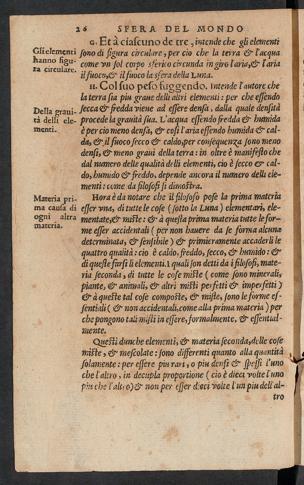 26 SFERA DEL MONDO
G. Et à ciascuno de tre, intende che gli elementi
Gli elementi
hanno figu
ra circulare.
sono di figura circulare, per cio che la terra & l'acqua
come vn sol corpo sferico circunda in giro l'aria, & l'aria
il fuoco, & il fuoco la sfera della Luna.
H. Col suo peso fuggendo. intende l'autore che
la terra sia piu graue delli altri elementi: per che essendo
secca & fredda viene ad essere densa, dalla quale densità
Della graui-
tà delli ele-
menti.
procede la grauità sua. L'acqua essendo fredda & humida
è per cio meno densa, & cosi l'aria essendo humida & cal-
da, & il fuoco secco & caldo per consequenza sono meno
densi, & meno graui della terra: in oltre è manifesto che
dal numero delle qualità delli elementi, cio è secco & cal-
do, humido & freddo, depende ancora il numero delli ele-
menti: come da filosofi si dimostra.
Materia pri
ma causa di
ogni altra
materia.
Hora è da notare che il filosofo pose la prima materia
esser vna, di tutte le cose (sotto la Luna) elementari, ele-
mentate, & miste: & à questa prima materia tutte le for-
me esser accidentali (per non hauere da se forma alcuna
determinata, & sensibile) & primieramente accaderli le
quattro qualità: cio è caldo, freddo, secco, & humido: &
di queste farsi li elementi. i quali son detti da i filosofi, mate-
ria seconda, di tutte le cose miste (come sono minerali,
piante, & animali, & altri misti perfetti & imperfetti)
& à queste tal cose composte, & miste, sono le forme es-
sentiali (& non accidentali, come alla prima materia) per
che pongono tali misti in essere, formalmente, & essential-
mente.
Questi dunche elementi, & materia seconda, delle cose
miste, & mescolate: sono differenti quanto alla quantità
solamente: per essere piu rari, o piu densi & spessi l'uno
che l'altro, in decupla proportione (cio è dieci volte l'uno
piu che l'altro) & non per esser dieci volte l'un piu dell'al-
tro